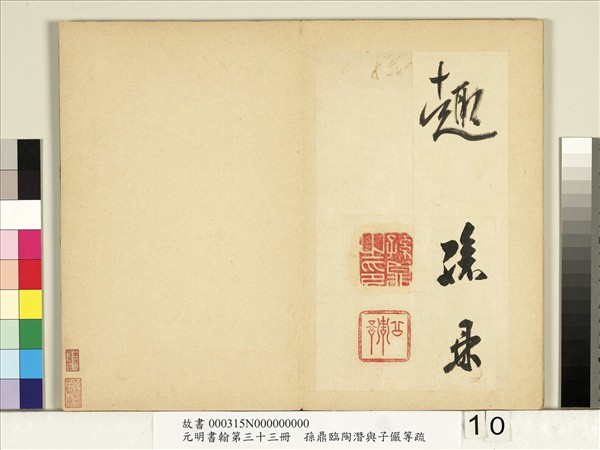 趣
孫鼎
故書 000315N000000000
元明書翰第三十三冊 孫鼎臨陶潛與子儼等疏
10